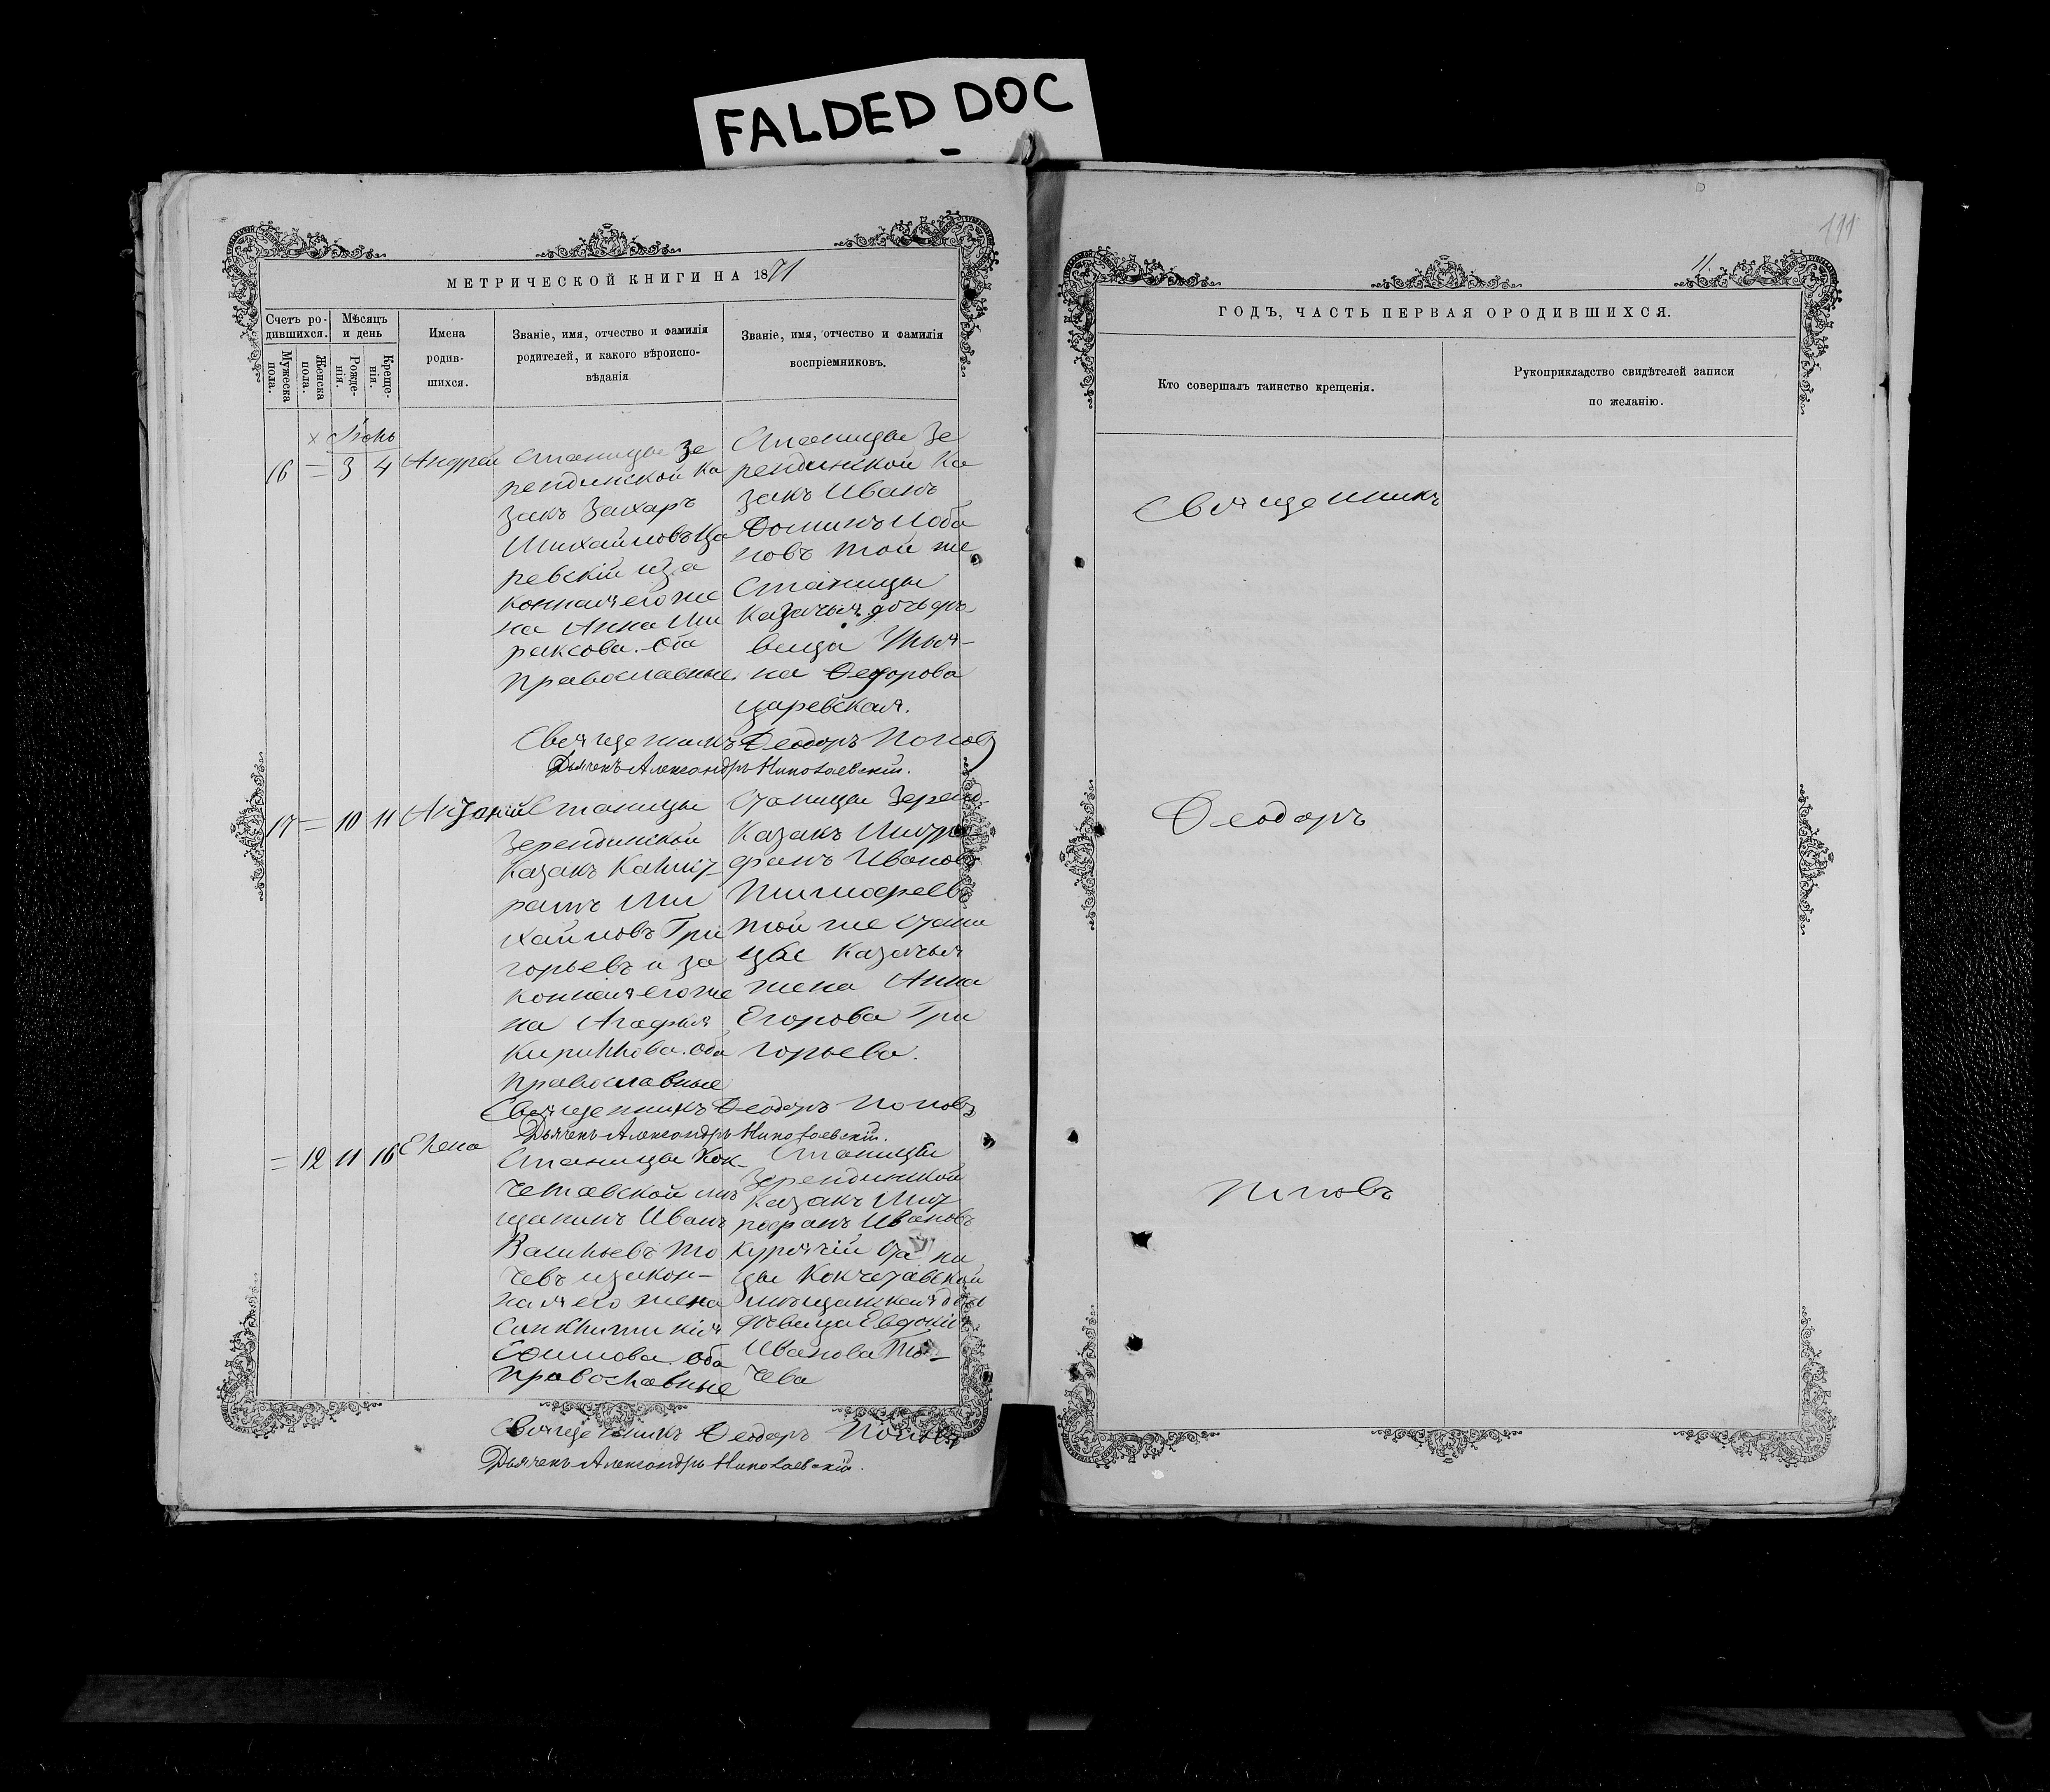 FALDED DOC
МЕТРИЧЕСКОЙ КНИГИ НА 1871
Счетъ ро-
дившихся.
Мѣсяцъ
и день
Мужеска
пола.
Женска
пола.
Рожде-
нія.
Креще-
нія.
Имена
родив-
шихся.
Званіе, имя, отчество и фамилія
родителей, и какого вѣроиспо-
вѣданія
Званіе, имя, отчество и фамилія
воспріемниковъ.
Іюнь
16 = 3 4 Андрей
Станицы Зе
рендинской Ка
закъ Захаръ
Михайловъ Ца
ревскій и за
конная его же
на Анна Ми
Оба
православные.
Станицы Зе
рендинской Ка
закъ Иванъ
Фоминъ Лоба
новъ той же
Станицы
Казачья дочь дѣ-
вица Улья-
на Федорова
Царевская.
Священникъ Феодоръ Поповъ
Дьячекъ Александръ Николаевскій.
17 = 10 11 Антоній
Станицы
Зерендинской
Казакъ Калист
ратъ Ми
хайловъ Гри
горьевъ и за
конная его же
на Агафья
Кирилова. Оба
православные
Станицы Зеренд.
Казакъ Митро
фанъ Ивановъ
Тимофеевъ
той же Стани
цы Казачья
жена Анна
Егорова Гри
горьева.
Священникъ Феодоръ Поповъ
Дьячекъ Александръ Николаевскій.
= 12 11 16 Елена
Станицы Кок-
четавской мѣ
щанинъ Иванъ
Васильевъ То
чевъ и закон-
ная его жена
Синклитикія
Оба
православные
Станицы
Зерендинской
Казакъ Мит
рофанъ Ивановъ
Курячій Ста ни
цы Кокчетавской
мѣщанская дочь
дѣвица Евдокія
Иванова То-
чева
Священникъ Феодоръ Поповъ
Дьячекъ Александръ Николаевскій.
111
11.
ГОДЪ, ЧАСТЬ ПЕРВАЯ О РОДИВШИХСЯ.
Кто совершалъ таинство крещенія.
Рукоприкладство свидѣтелей записи
по желанію.
Священникъ
Феодоръ
Поповъ